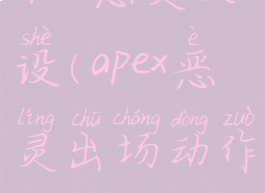 shè è
设(apex恶
líng chū chǎng dòng zuò
灵出场动作